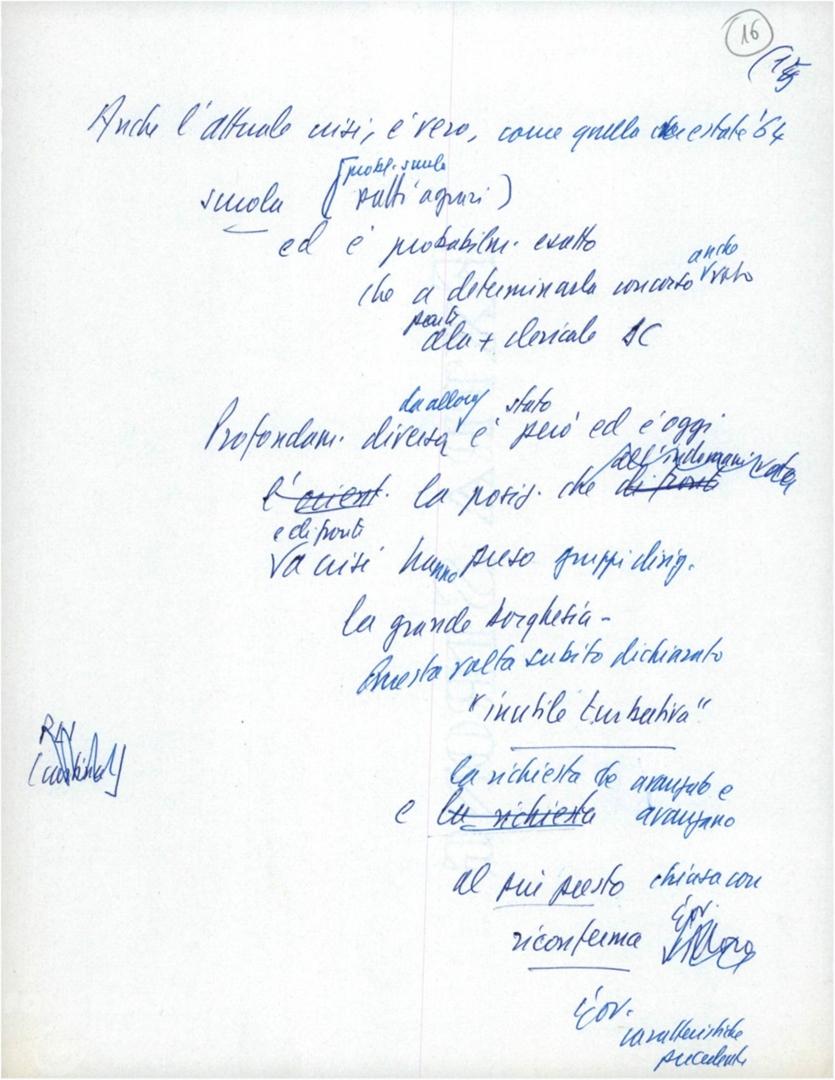 16
(15
Anche l'attuale crisi, è vero, come quella estate '64
probl. scuola
scuola (patti agrari)
ed è probabilm. esatto
anche
che a determinarla concorso
ala + clericale DC
da allora stato
Profondam. diversa è però ed è oggi
all'indomani voto
l'orient. la posiz. che di front
e di fronti
a crisi hanno preso gruppi dirig.
la grande borghesia -
Questa volta subito dichiarato
"inutile turbativa"
la richiesta che avanzato e
e la richiesta avanzano
al più presto chiusa con
riconferma
Gov.
caratteristiche
precedente